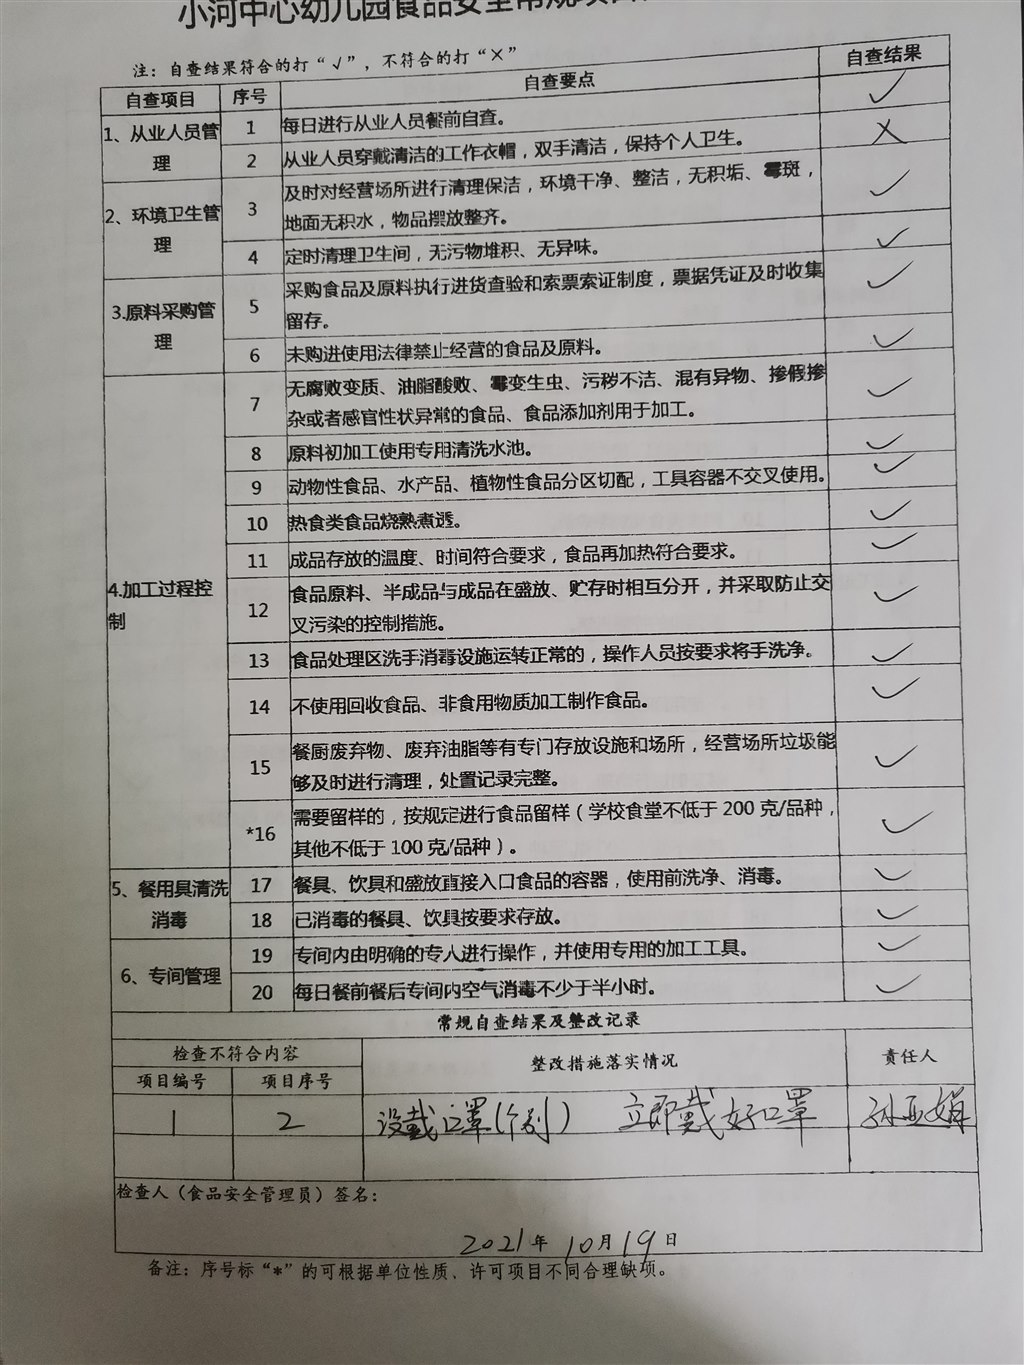 小河中心幼儿园食品安全常规项目
注：自查结果符合的打“√”，不符合的打“×”
自查项目 序号 自查要点 自查结果
1、从业人员管理
1 每日进行从业人员餐前自查。 ✓
2 从业人员穿戴清洁的工作衣帽，双手清洁，保持个人卫生。 ×
2、环境卫生管理
3 及时对经营场所进行清理保洁，环境干净、整洁，无积垢、霉斑，
地面无积水，物品摆放整齐。 ✓
4 定时清理卫生间，无污物堆积、无异味。 ✓
3.原料采购管理
5 采购食品及原料执行进货查验和索票索证制度，票据凭证及时收集
留存。 ✓
6 未购进使用法律禁止经营的食品及原料。 ✓
4.加工过程控制
7 无腐败变质、油脂酸败、霉变生虫、污秽不洁、混有异物、掺假掺
杂或者感官性状异常的食品、食品添加剂用于加工。 ✓
8 原料初加工使用专用清洗水池。 ✓
9 动物性食品、水产品、植物性食品分区切配，工具容器不交叉使用。 ✓
10 热食类食品烧熟煮透。 ✓
11 成品存放的温度、时间符合要求，食品再加热符合要求。 ✓
12 食品原料、半成品与成品在盛放、贮存时相互分开，并采取防止交
叉污染的控制措施。 ✓
13 食品处理区洗手消毒设施运转正常的，操作人员按要求将手洗净。 ✓
14 不使用回收食品、非食用物质加工制作食品。 ✓
15 餐厨废弃物、废弃油脂等有专门存放设施和场所，经营场所垃圾能
够及时进行清理，处置记录完整。 ✓
*16 需要留样的，按规定进行食品留样（学校食堂不低于 200 克/品种，
其他不低于 100 克/品种）。 ✓
5、餐用具清洗消毒
17 餐具、饮具和盛放直接入口食品的容器，使用前洗净、消毒。 ✓
18 已消毒的餐具、饮具按要求存放。 ✓
6、专间管理
19 专间内由明确的专人进行操作，并使用专用的加工工具。 ✓
20 每日餐前餐后专间内空气消毒不少于半小时。 ✓
常规自查结果及整改记录
检查不符合内容 整改措施落实情况 责任人
项目编号 项目序号
1 2 没戴口罩（个别） 立即戴好口罩 孙亚娟
检查人（食品安全管理员）签名：
2021年 10月19日
备注：序号标“*”的可根据单位性质、许可项目不同合理缺项。